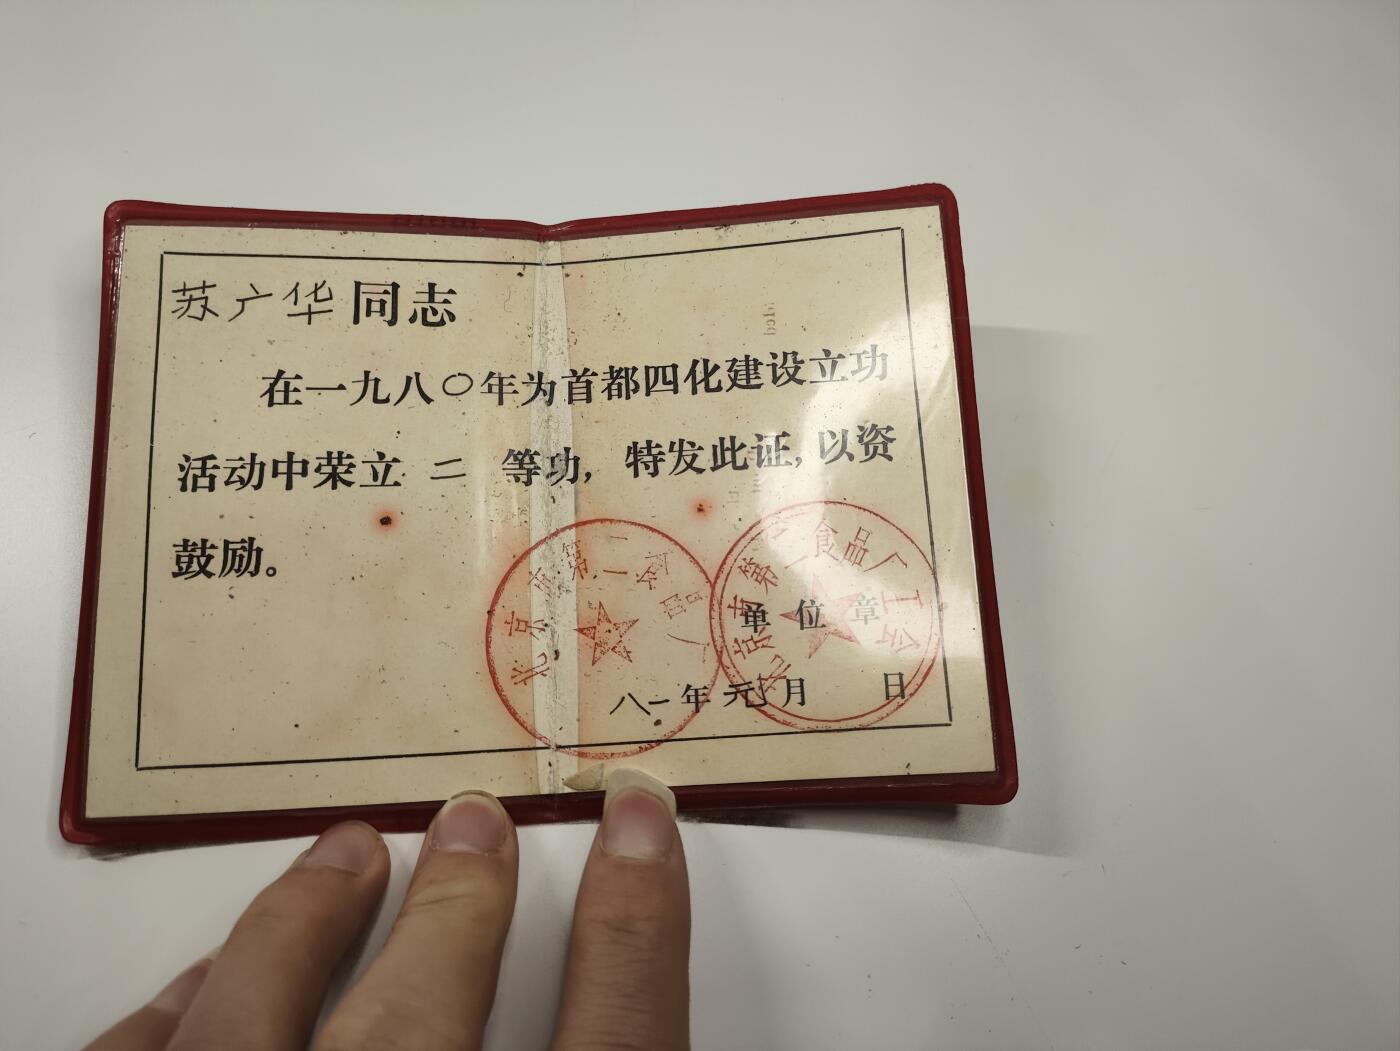 苏广华同志
在一九八〇年为首都四化建设立功
活动中荣立 二 等功，特发此证，以资
鼓励。
北京市第二食品厂
北京市第二食品厂工会
单位章
八一年元月 日